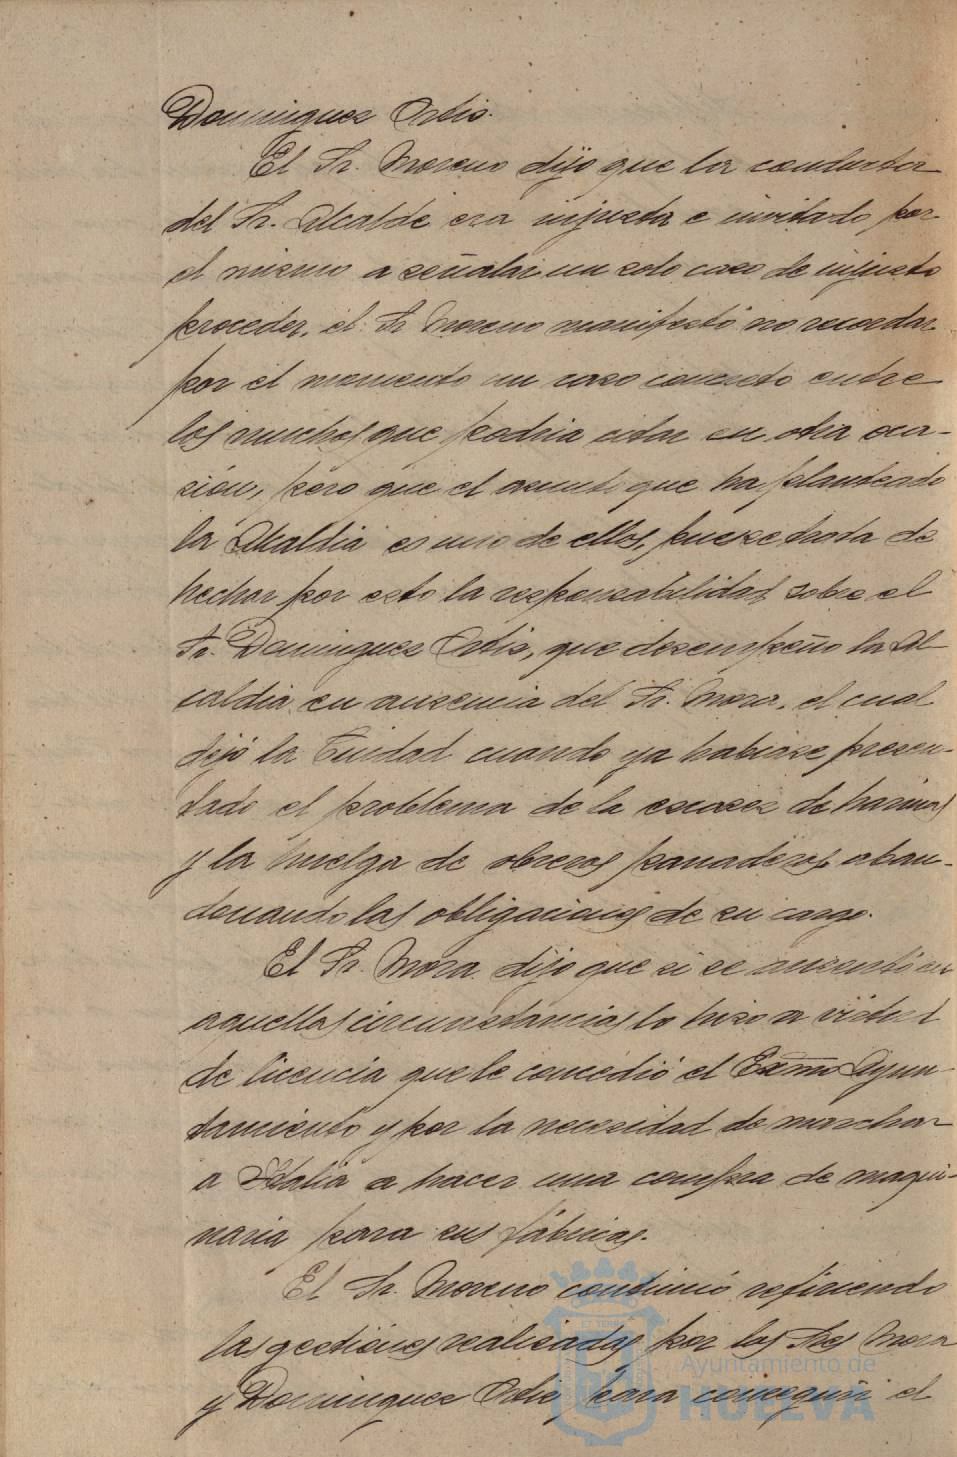 Dominguez Ortiz.
El Sr. Moreno dijo que la conducta
del Sr. Alcalde era injusta e invitado por
el mismo a señalar un solo caso de injusto
proceder, el Sr Moreno manifestó no recordar
por el momento un caso concreto entre
los muchos que podria citar en otra oca-
sión, pero que el asunto que ha planteado
la Alcaldia es uno de ellos, pues se trata de
hechar por esto la responsabilidad sobre el
Sr. Dominguez Ortiz, que desempeño la Al
caldia en ausencia del Sr. Mora, el cual
dejó la Ciudad cuando ya habiase presen-
tado el problema de la escasez de harinas
y la huelga de obreros panaderos aban-
donando las obligaciones de su cargo.
El Sr. Mora dijo que si se ausentó en
aquellas circunstancias lo hizo a virtud
de licencia que le concedió el Excmo Ayun
tamiento y por la necesidad de marchar
a Italia a hacer una compra de maqui-
naria para sus fábricas.
El Sr. Moreno continuó refiriendo
las gestiones realizadas por los Sres Mora
y Dominguez Ortiz para conseguir el
Ayuntamiento de
HUELVA